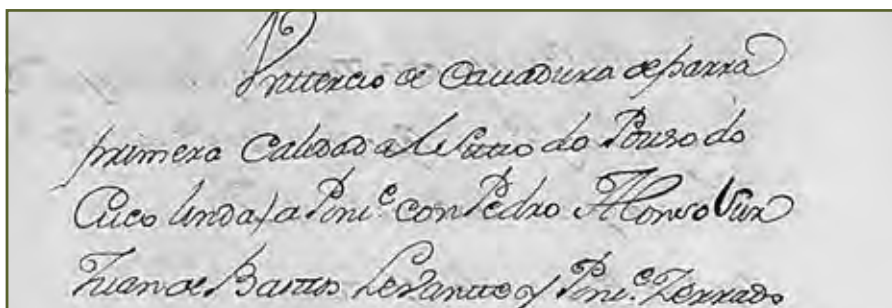 Un tercio de Cauadura de parra
primera Calidad al Sitio do Pouso do
Cuco linda / a Pon.ᵉ con Pedro Alonso Sur
Juan de Bastos Levante y Pon.ᵉ Zerrado